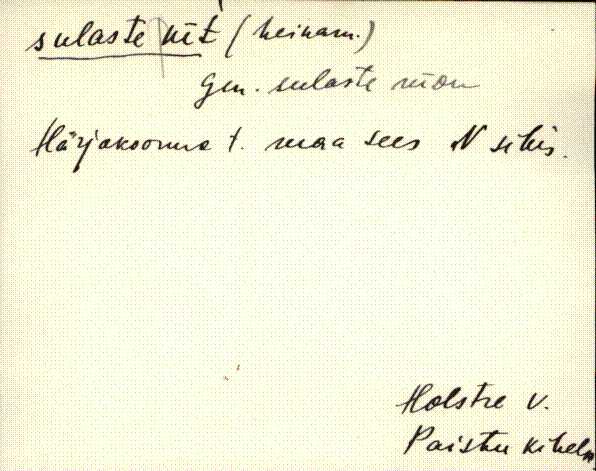 sulaste nīt (heinam.)
Gen. sulaste
Härjakoorma t. maa sees N sihis.
Holstre v.
Paistu kihelk